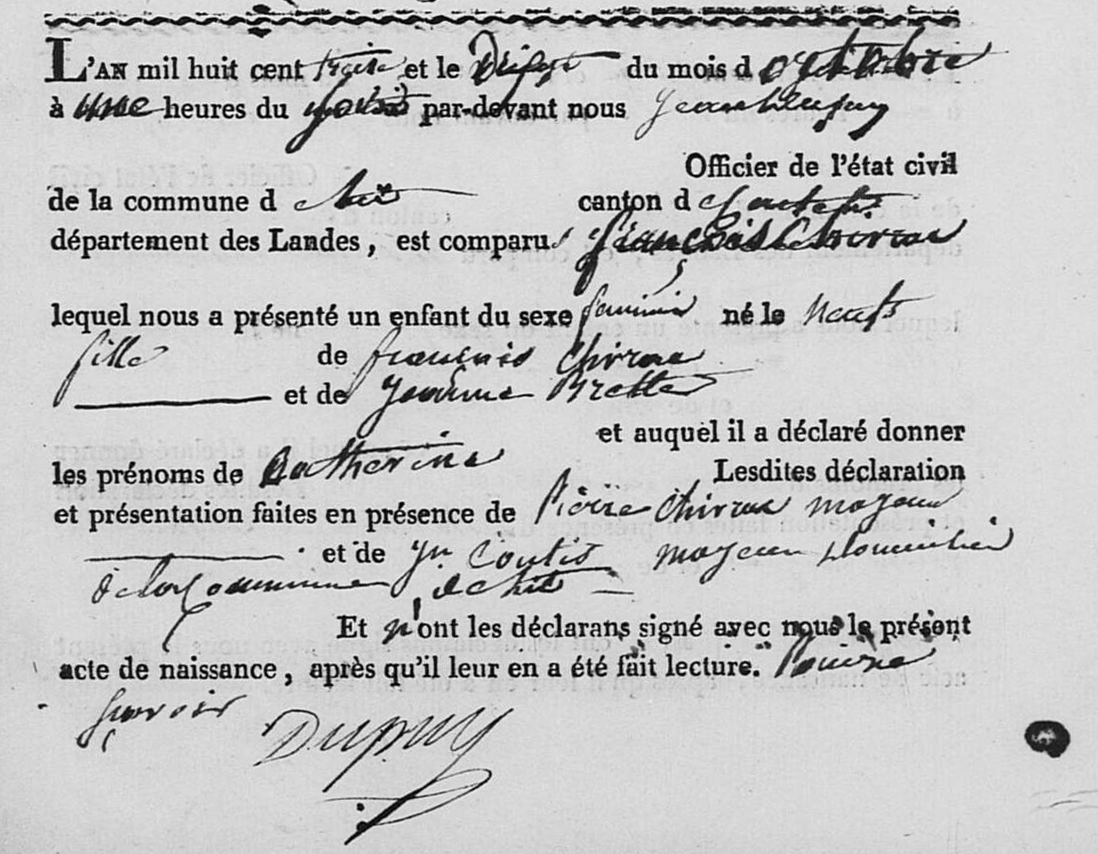 L'AN mil huit cent treize et le Dix du mois d octobre
à une heures du par-devant nous Jean Dupuy
Officier de l'état civil
de la commune d canton d
département des Landes, est comparu françois Chivrac
lequel nous a présenté un enfant du sexe feminin né le neuf
fille de françois Chivrac
et de Jeanne Brette
et auquel il a déclaré donner
les prénoms de Catherine Lesdites déclaration
et présentation faites en présence de Pierre Chivrac majeur
et de jn majeur
de la Commune
Et n'ont les déclarans signé avec nous le présent
acte de naissance, après qu'il leur en a été fait lecture. Pour ne
savoir
Dupuy